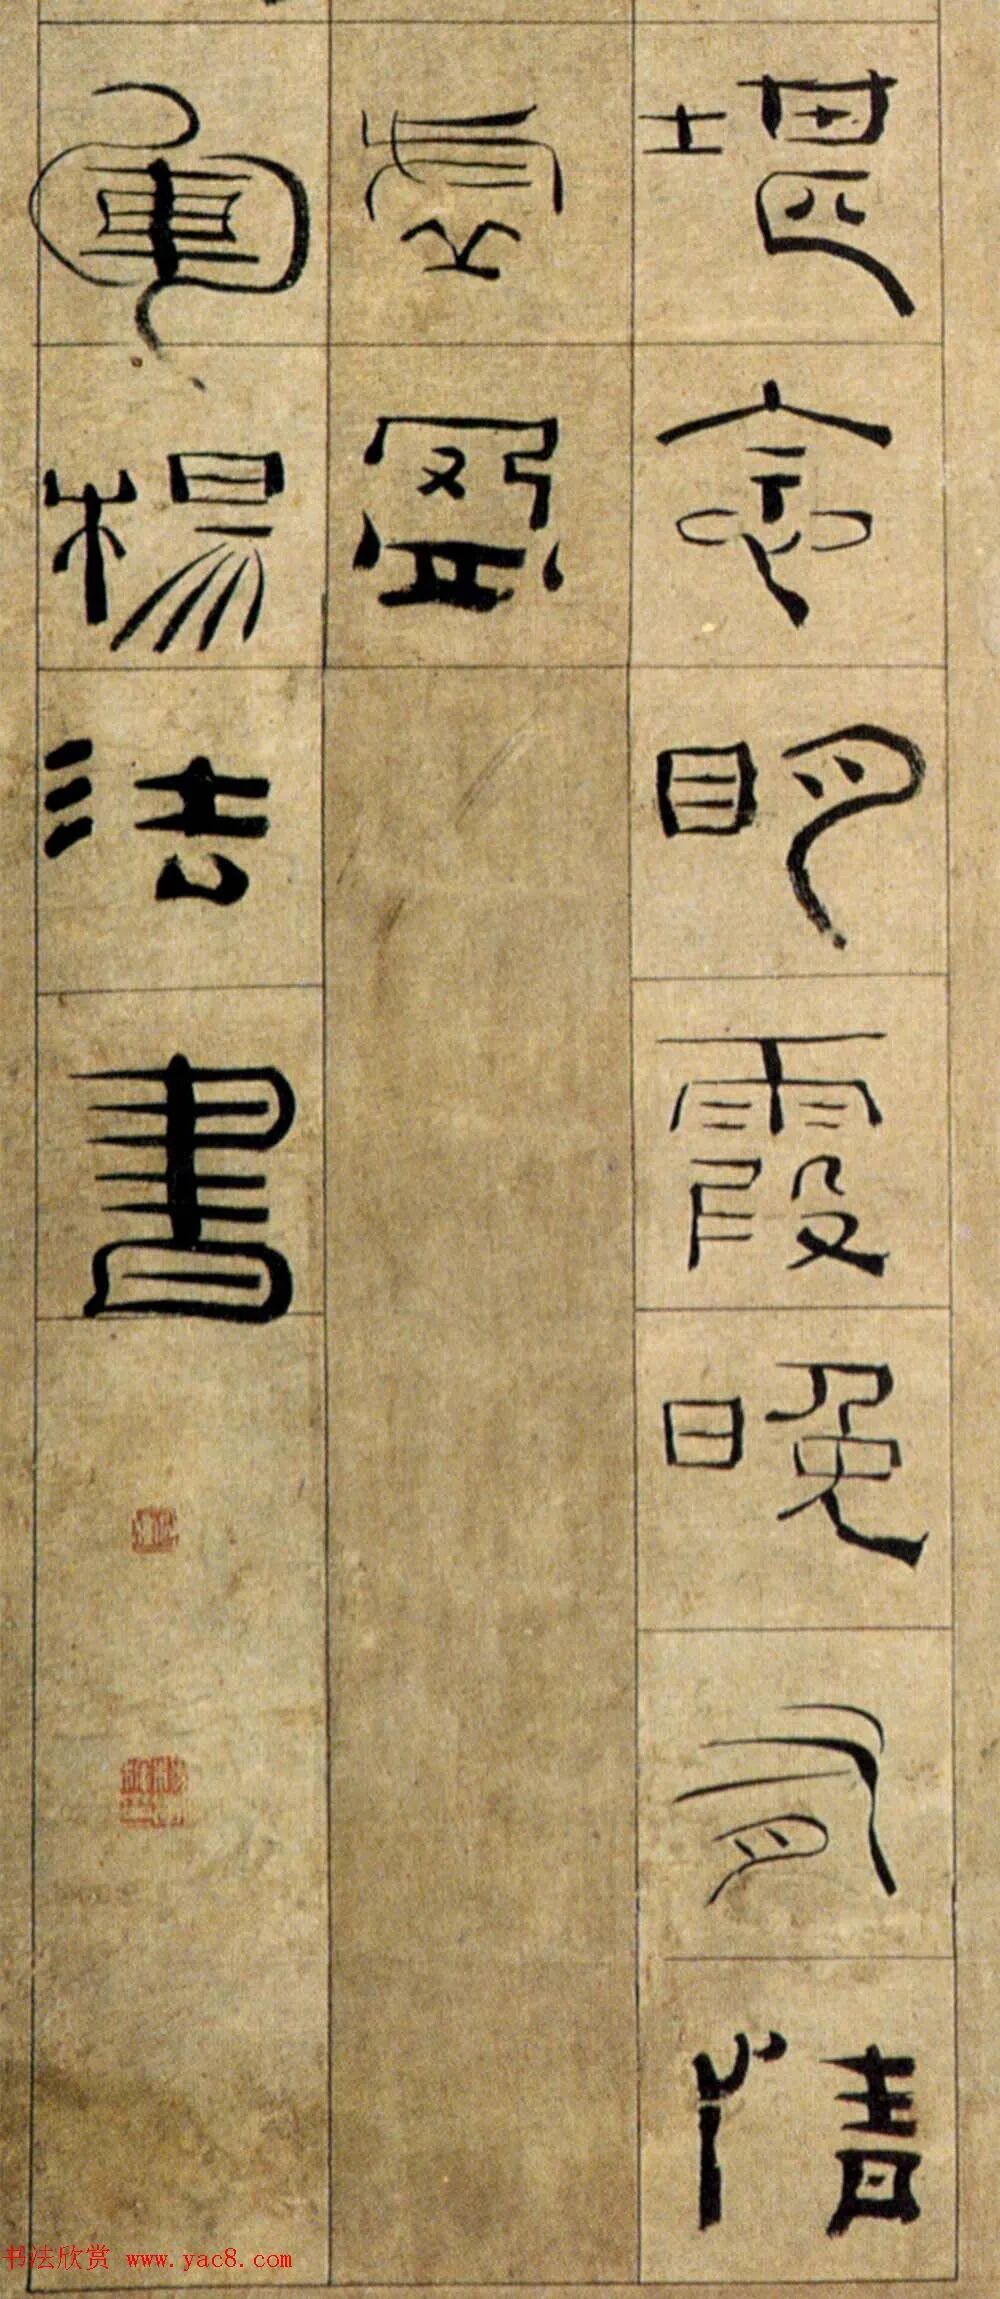 堪念明霞晚有情
虛盈
軍楊法書
书法欣赏 www.yac8.com